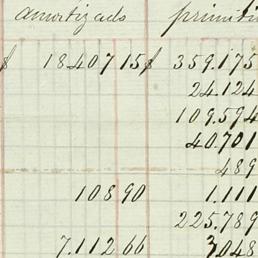 amortizados primiti
$ 18407 15 $ 359.175
24.124
109.594
40.701
489
108 90 1.111
225.789
7.112 66 3048